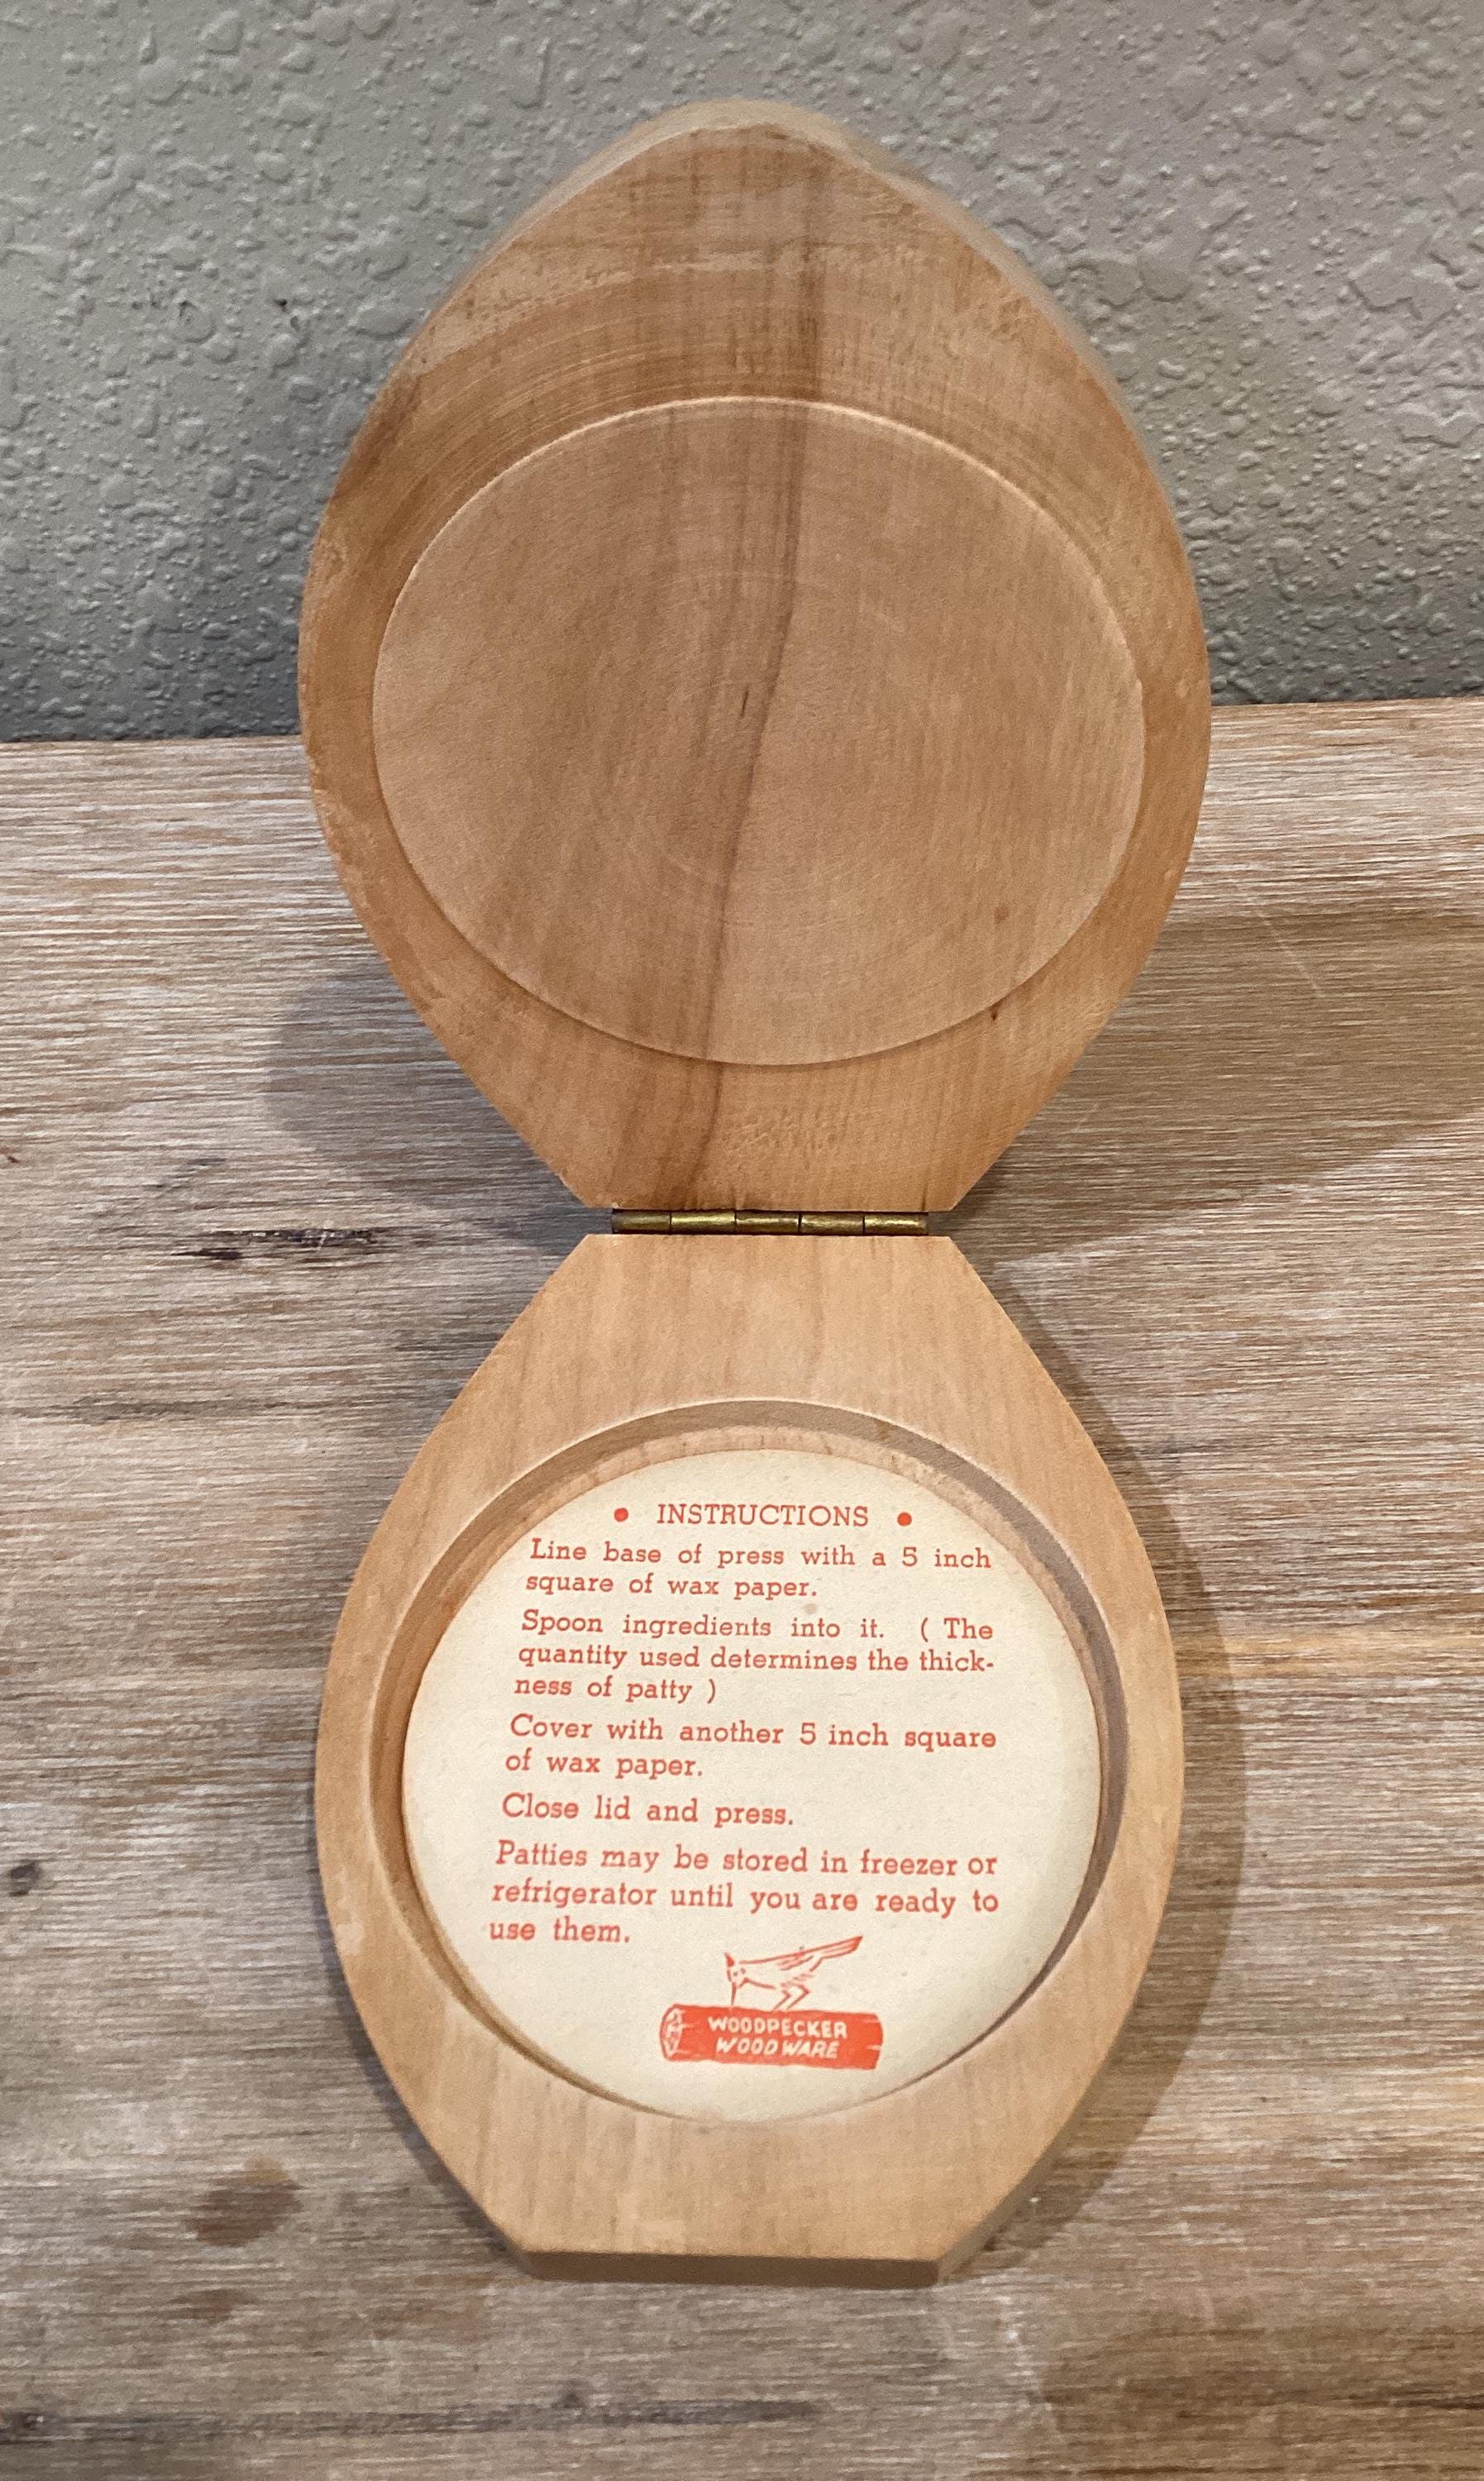 • INSTRUCTIONS •
Line base of press with a 5 inch
square of wax paper.
Spoon ingredients into it. ( The
quantity used determines the thick-
ness of patty )
Cover with another 5 inch square
of wax paper.
Close lid and press.
Patties may be stored in freezer or
refrigerator until you are ready to
use them.
WOODPECKER
WOODWARE